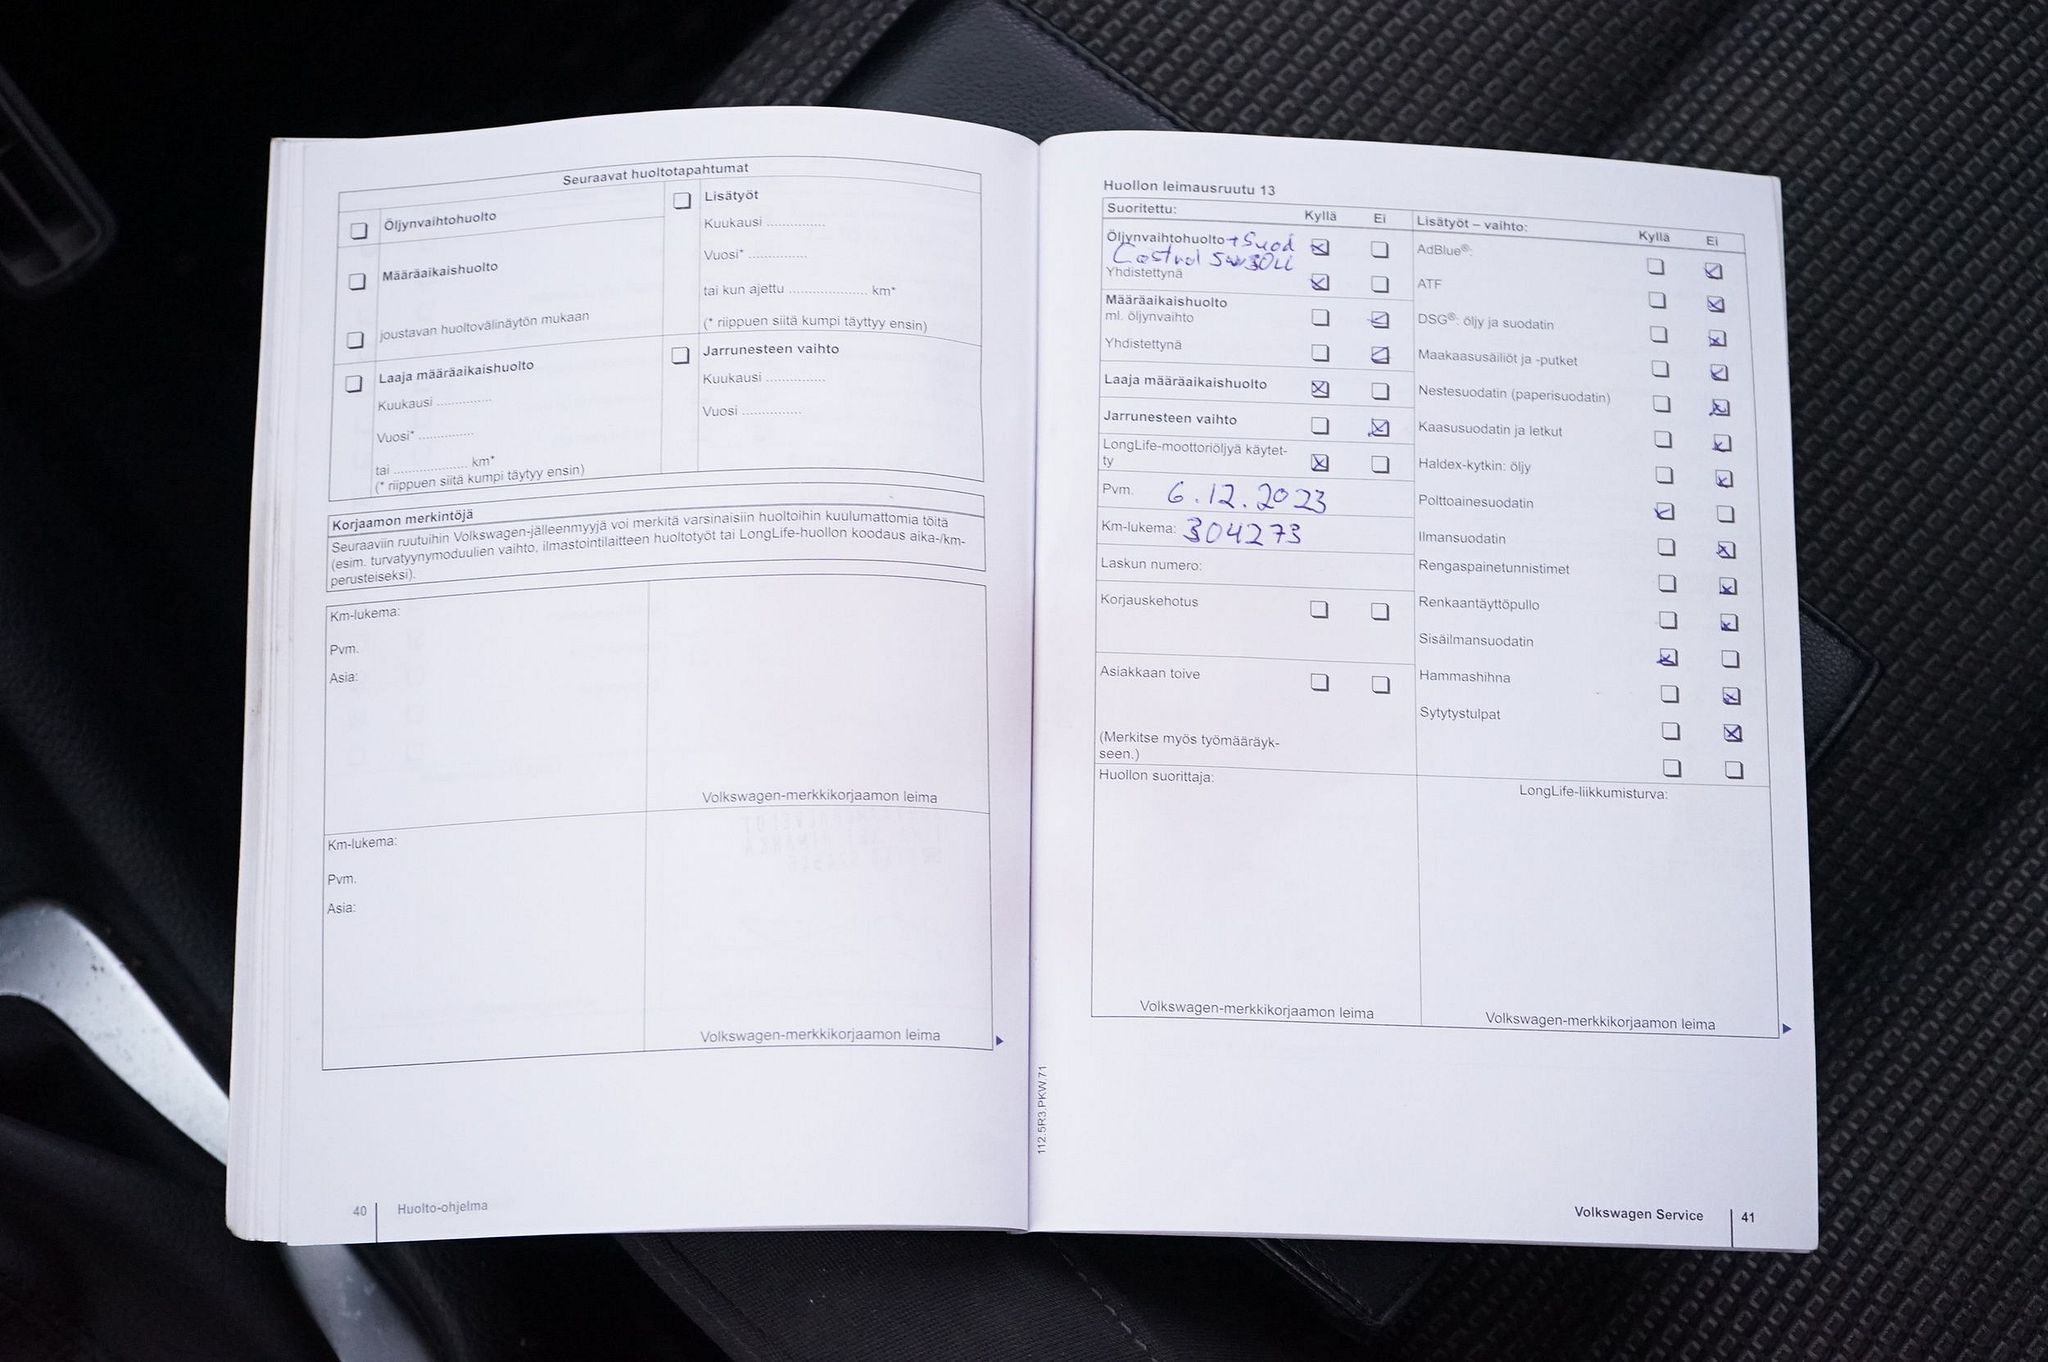 Seuraavat huoltotapahtumat
Öljynvaihtohuolto
Määräaikaishuolto
joustavan huoltovälinäytön mukaan
Laaja määräaikaishuolto
Kuukausi ..............
Vuosi* ..............
tai ................... km*
(* riippuen siitä kumpi täytyy ensin)
Lisätyöt
Kuukausi ..............
Vuosi* ..............
tai kun ajettu .................... km*
(* riippuen siitä kumpi täyttyy ensin)
Jarrunesteen vaihto
Kuukausi ..............
Vuosi ..............
Korjaamon merkintöjä
Seuraaviin ruutuihin Volkswagen-jälleenmyyjä voi merkitä varsinaisiin huoltoihin kuulumattomia töitä
(esim. turvatyynymoduulien vaihto, ilmastointilaitteen huoltotyöt tai LongLife-huollon koodaus aika-/km-
perusteiseksi).
Km-lukema:
Pvm.
Asia:
Volkswagen-merkkikorjaamon leima
Km-lukema:
Pvm.
Asia:
Volkswagen-merkkikorjaamon leima
40
Huolto-ohjelma
Huollon leimausruutu 13
Suoritettu: Kyllä Ei
Öljynvaihtohuolto + Suod
Castrol 5w30LL
Yhdistettynä
Määräaikaishuolto
ml. öljynvaihto
Yhdistettynä
Laaja määräaikaishuolto
Jarrunesteen vaihto
LongLife-moottoriöljyä käytet-
ty
Pvm. 6.12.2023
Km-lukema: 304273
Laskun numero:
Korjauskehotus
Asiakkaan toive
(Merkitse myös työmääräyk-
seen.)
Lisätyöt – vaihto: Kyllä Ei
AdBlue®:
ATF
DSG®: öljy ja suodatin
Maakaasusäiliöt ja -putket
Nestesuodatin (paperisuodatin)
Kaasusuodatin ja letkut
Haldex-kytkin: öljy
Polttoainesuodatin
Ilmansuodatin
Rengaspainetunnistimet
Renkaantäyttöpullo
Sisäilmansuodatin
Hammashihna
Sytytystulpat
Huollon suorittaja:
Volkswagen-merkkikorjaamon leima
LongLife-liikkumisturva:
Volkswagen-merkkikorjaamon leima
112.5R3.PKW.71
Volkswagen Service
41